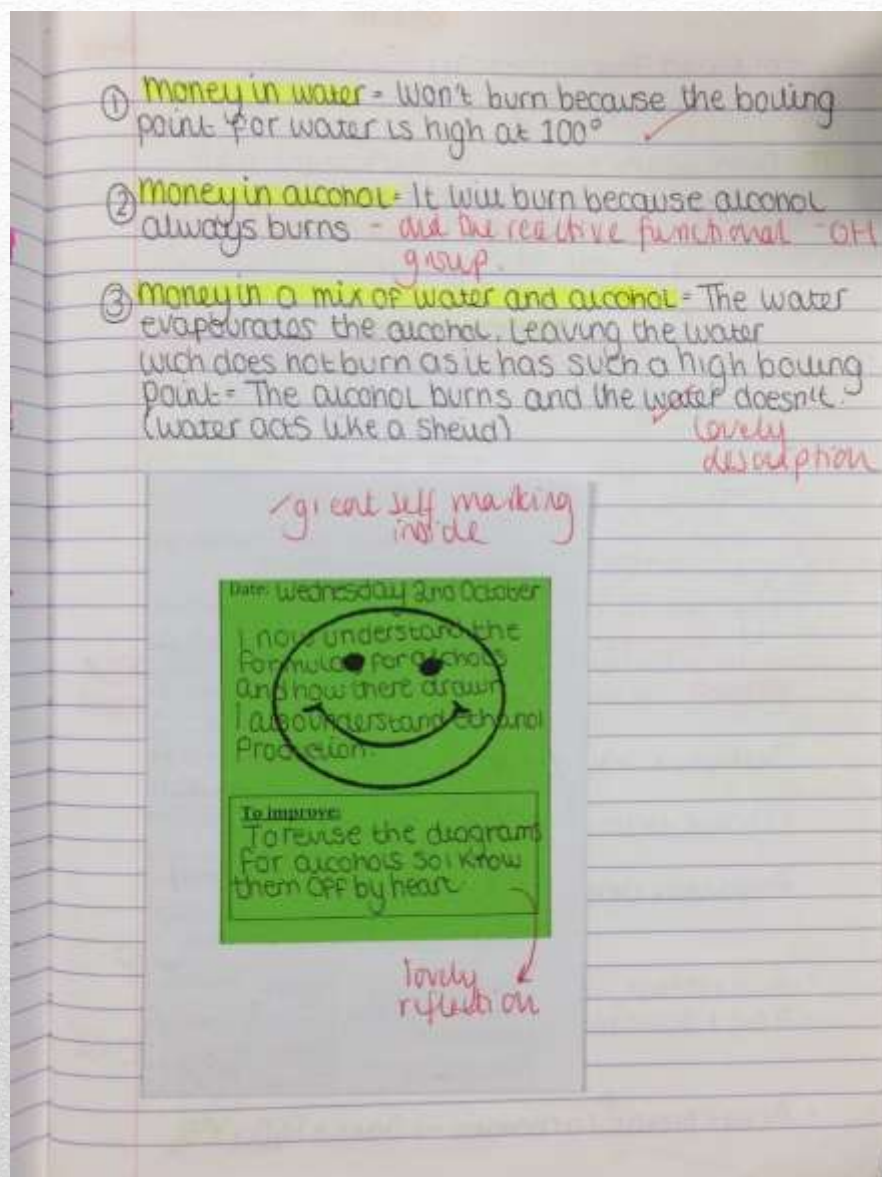 ① Money in water = Won't burn because the boiling
point for water is high at 100°
② Money in alcohol = It will burn because alcohol
always burns - and the reactive functional -OH
group.
③ Money in a mix of water and alcohol = The water
evapourates the alcohol. Leaving the water
wich does not burn as it has such a high boiling
point = The alcohol burns and the water doesn't.
(water acts like a sheild)
lovely
description
great self marking
inside
Date: Wednesday 2nd October
I now understand the
formulas for alchols
and how there drawn
I also understand ethanol
Production.
To improve:
To revise the diagrams
for alcohols so i know
them OFF by heart.
lovely
reflection